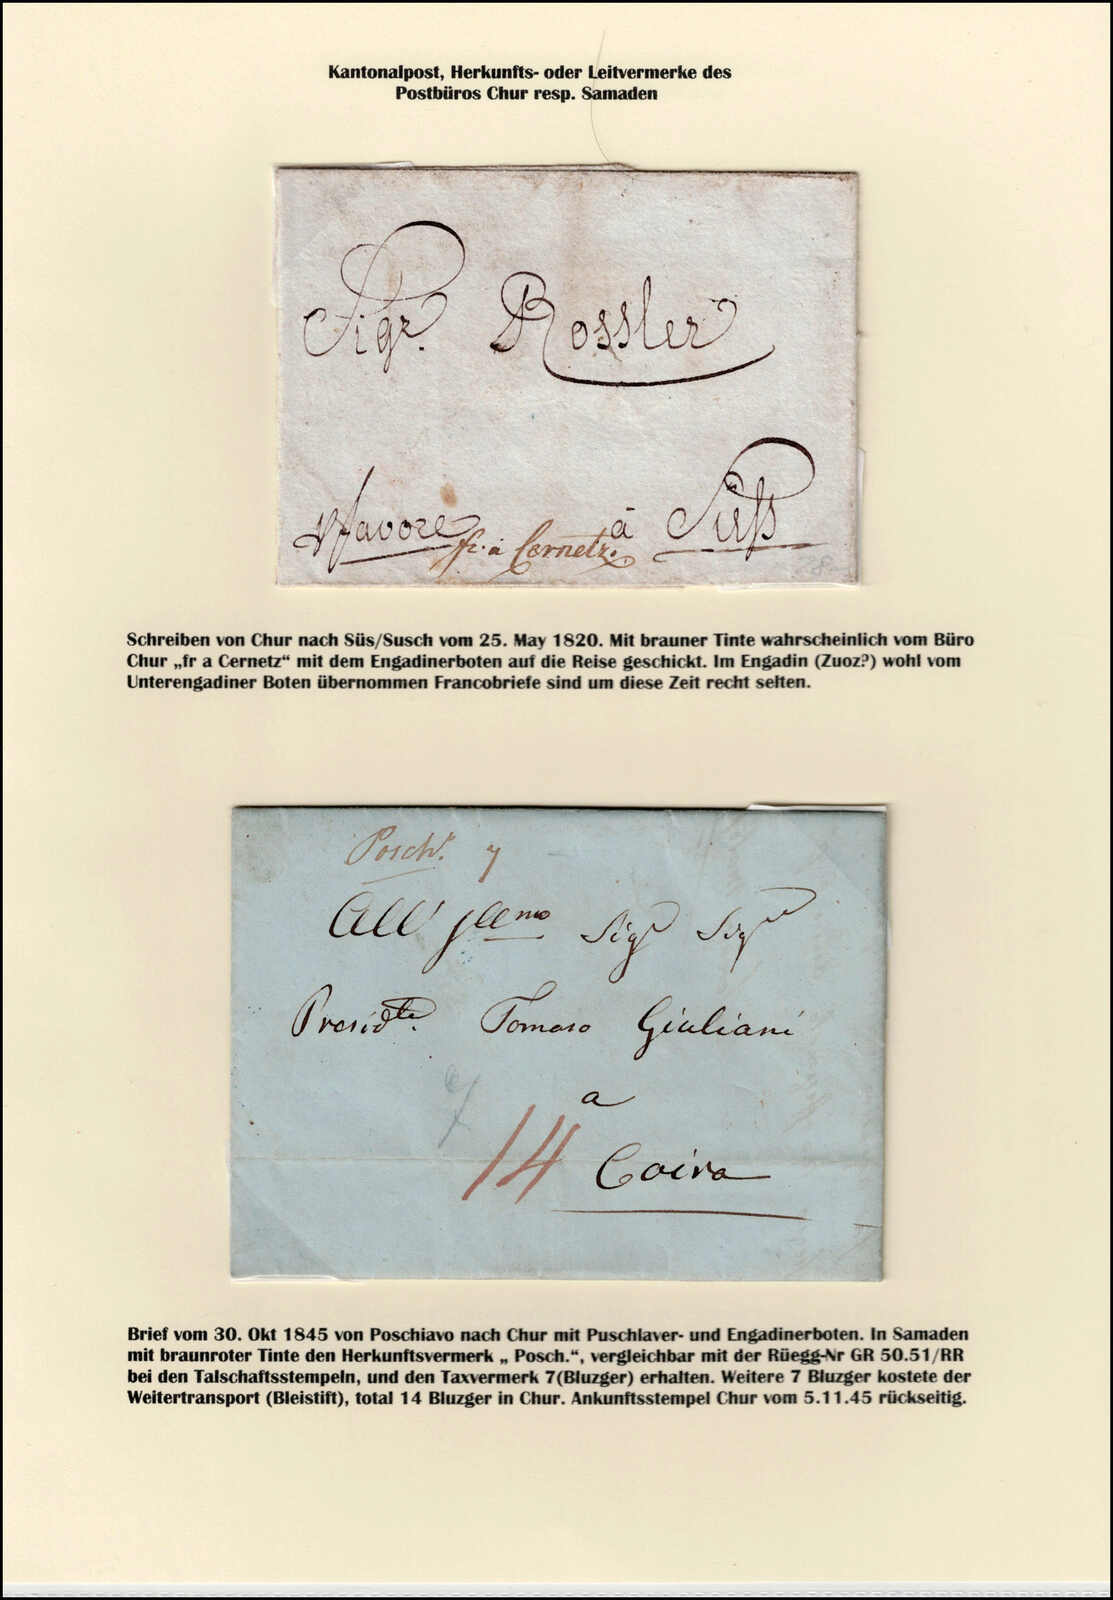 Kantonalpost, Herkunfts- oder Leitvermerke des
Postbüros Chur resp. Samaden
Sigr. Rossler
favore à Süß
fr. a Cernetz.
Schreiben von Chur nach Süs/Susch vom 25. May 1820. Mit brauner Tinte wahrscheinlich vom Büro
Chur „fr a Cernetz“ mit dem Engadinerboten auf die Reise geschickt. Im Engadin (Zuoz?) wohl vom
Unterengadiner Boten übernommen Francobriefe sind um diese Zeit recht selten.
Posch. 7
All' Illmo Sigr Sigr
Presidte. Tomaso Giuliani
a
7
14 Coira
Brief vom 30. Okt 1845 von Poschiavo nach Chur mit Puschlaver- und Engadinerboten. In Samaden
mit braunroter Tinte den Herkunftsvermerk „ Posch.“, vergleichbar mit der Rüegg-Nr GR 50.51/RR
bei den Talschaftsstempeln, und den Taxvermerk 7(Bluzger) erhalten. Weitere 7 Bluzger kostete der
Weitertransport (Bleistift), total 14 Bluzger in Chur. Ankunftsstempel Chur vom 5.11.45 rückseitig.